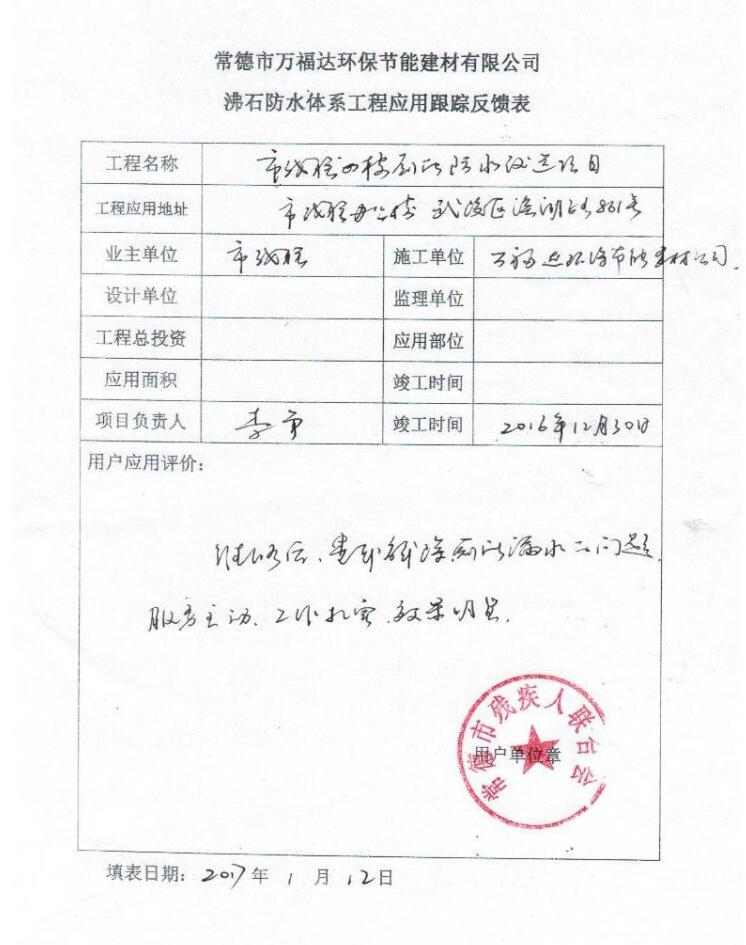 常德市万福达环保节能建材有限公司
沸石防水体系工程应用跟踪反馈表
工程名称 市残联四楼厕所防水改造项目
工程应用地址 市残联办公楼 武陵区 861号
业主单位 市残联 施工单位 万福达环保节能建材公司
设计单位 监理单位
工程总投资 应用部位
应用面积 竣工时间
项目负责人 李 竣工时间 2016年12月30日
用户应用评价：
厕所漏水问题
服务主动、工作扎实、效果明显。
常德市残疾人联合会
用户单位章
填表日期：2017年1月12日